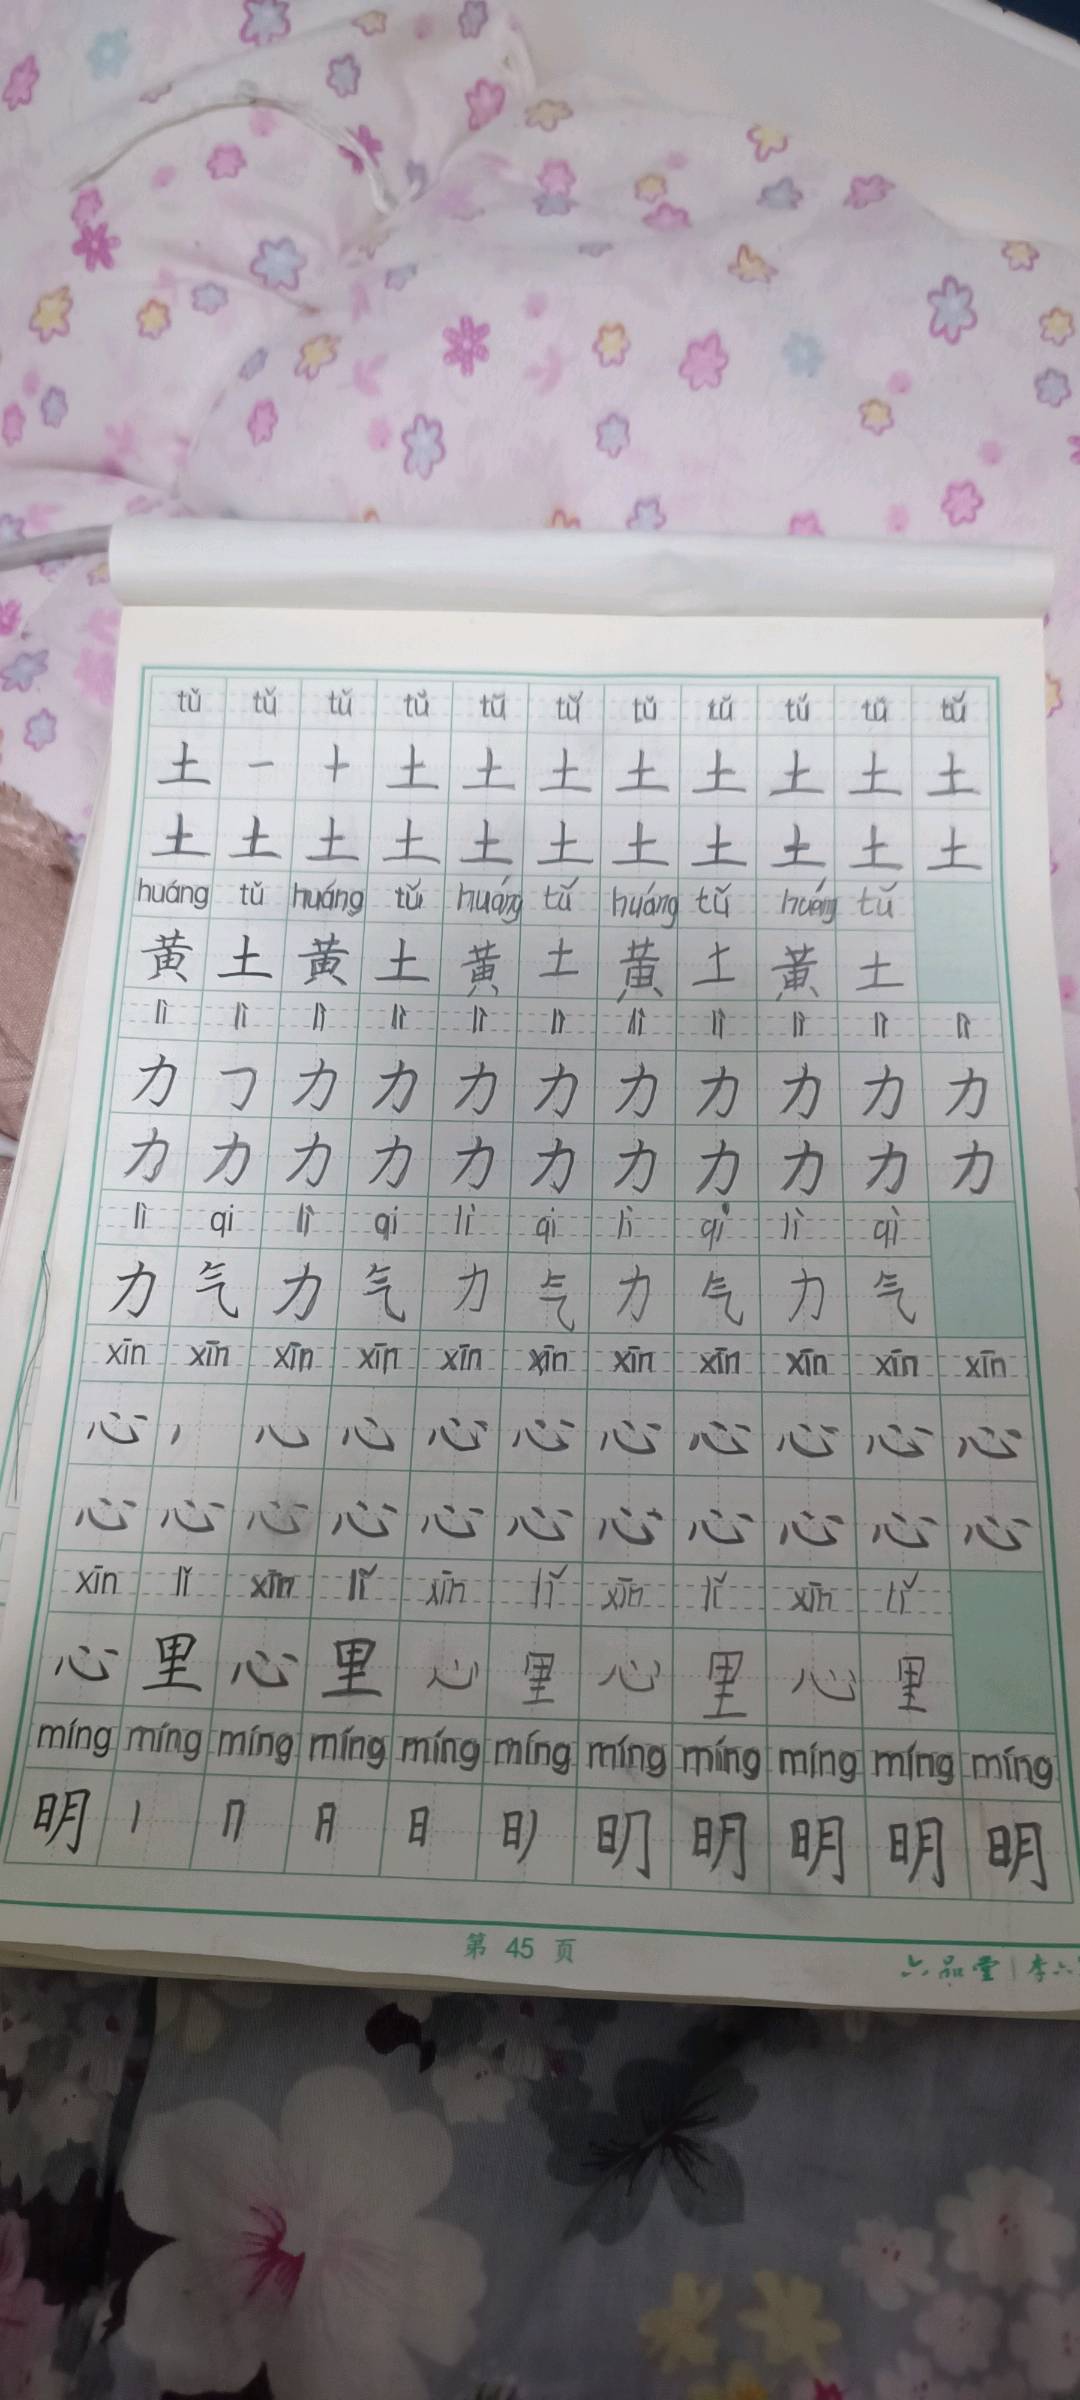 tǔ tǔ tǔ tǔ tǔ tǔ tǔ tǔ tǔ tǔ tǔ
土 一 十 土 土 土 土 土 土 土 土
土 土 土 土 土 土 土 土 土 土 土
huáng tǔ huáng tǔ huáng tǔ huáng tǔ huáng tǔ
黄 土 黄 土 黄 土 黄 土 黄 土
lì lì lì lì lì lì lì lì lì lì lì
力 ㇆ 力 力 力 力 力 力 力 力 力
力 力 力 力 力 力 力 力 力 力 力
lì qi lì qi lì qi lì qi lì qì
力 气 力 气 力 气 力 气 力 气
xīn xīn xīn xīn xīn xīn xīn xīn xīn xīn xīn
心 心 心 心 心 心 心 心 心
心 心 心 心 心 心 心 心 心 心 心
xīn lǐ xīn lǐ xīn lǐ xīn lǐ xīn lǐ
心 里 心 里 心 里 心 里 心 里
míng míng míng míng míng míng míng míng míng míng míng
明 丨 冂 日 明 明 明 明
第 45 页
六品堂 | 李六